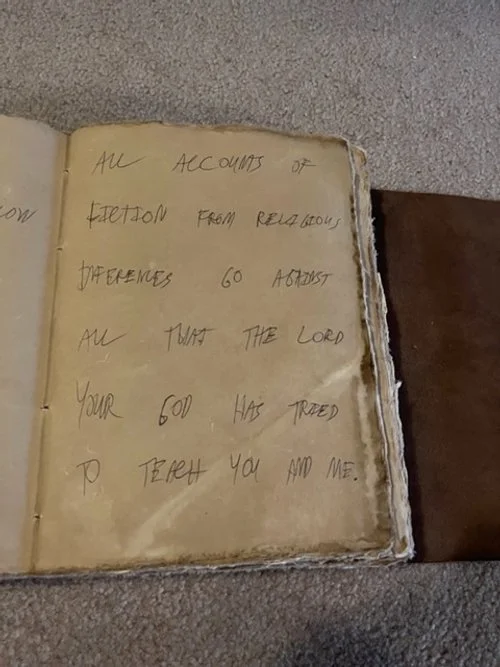 ALL ACCOUNTS OF
FICTION FROM RELIGIOUS
DIFERENCES GO AGAINST
ALL THAT THE LORD
YOUR GOD HAS TRIED
TO TEACH YOU AND ME.